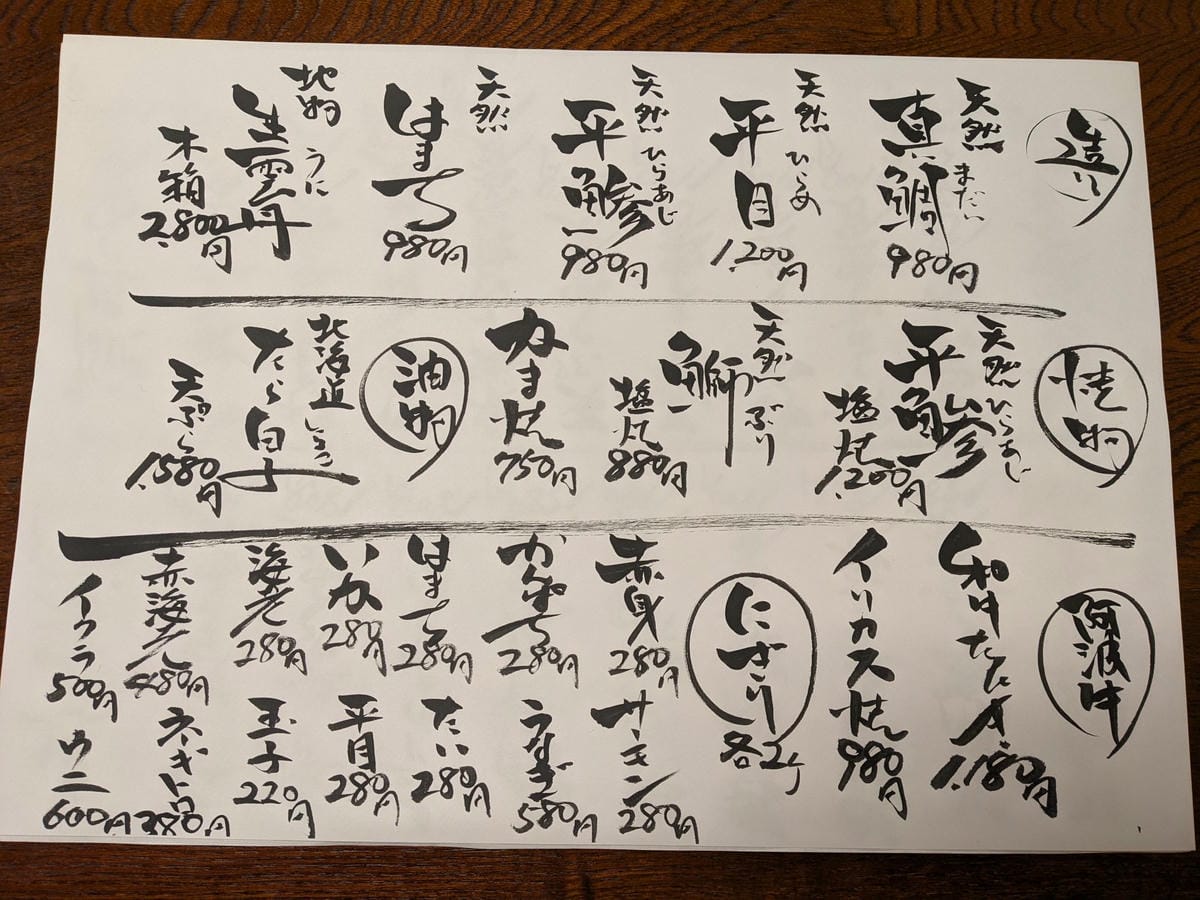 造り
天然
真鯛
まだい
980円
天然
平目
ひらめ
1,200円
天然
平鰺
ひらあじ
980円
天然
はまち
980円
地物
生雲丹
うに
木箱
2,800円
焼物
天然
平鰺
ひらあじ
塩焼
1,200円
天然
鰤
ぶり
塩焼
880円
かま焼
750円
油物
北海道
たら白子
天ぷら
1,580円
阿波牛
和牛たたき
1,180円
イリカス焼
980円
にぎり
各2ケ
赤身
280円
サーモン
280円
280円
うなぎ
580円
はまち
280円
たい
280円
いか
280円
平目
280円
海老
280円
玉子
220円
赤海老
480円
ネギトロ
280円
イクラ
500円
ウニ
600円